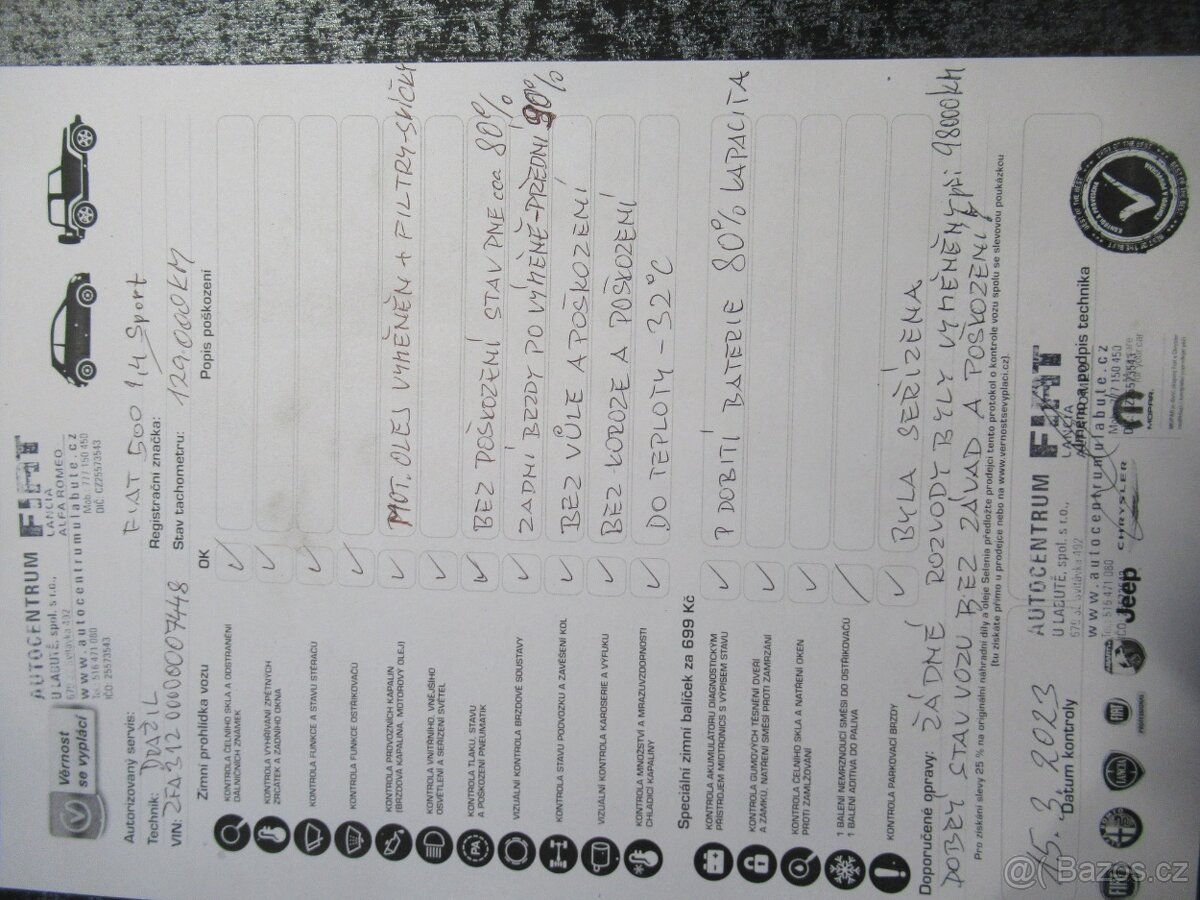 Věrnost
se vyplácí
AUTOCENTRUM FIAT
U LABUTĚ, spol. s r.o., LANCIA
ALFA ROMEO
www.autocentrumulabute.cz
Tel. 516 471 080 Mob. 777 150 450
IČO 25573543 DIČ. CZ25573543
Autorizovaný servis:
Technik:
VIN: ZFA31200000007448
FIAT 500 1,4 Sport
Registrační značka:
Stav tachometru: 129.000KM
Zimní prohlídka vozu OK Popis poškození
KONTROLA ČELNÍHO SKLA A ODSTRANĚNÍ
DÁLNIČNÍCH ZNÁMEK
KONTROLA VYHŘÍVÁNÍ ZPĚTNÝCH
ZRCÁTEK A ZADNÍHO OKNA
KONTROLA FUNKCE A STAVU STĚRAČŮ
KONTROLA FUNKCE OSTŘIKOVAČŮ
KONTROLA PROVOZNÍCH KAPALIN
(BRZDOVÁ KAPALINA, MOTOROVÝ OLEJ) MOT. OLEJ VYMĚNĚN + FILTRY-SVÍČKY
KONTROLA VNITŘNÍHO, VNĚJŠÍHO
OSVĚTLENÍ A SEŘÍZENÍ SVĚTEL
KONTROLA TLAKU, STAVU
A POŠKOZENÍ PNEUMATIK BEZ POŠKOZENÍ STAV PNE cca 80%
VIZUÁLNÍ KONTROLA BRZDOVÉ SOUSTAVY ZADNÍ BRZDY PO VÝMĚNĚ-PŘEDNÍ 90%
KONTROLA STAVU PODVOZKU A ZAVĚŠENÍ KOL BEZ VŮLE A POŠKOZENÍ
VIZUÁLNÍ KONTROLA KAROSERIE A VÝFUKU BEZ KOROZE A POŠKOZENÍ
KONTROLA MNOŽSTVÍ A MRAZUVZDORNOSTI
CHLADICÍ KAPALINY DO TEPLOTY -32°C
Speciální zimní balíček za 699 Kč
KONTROLA AKUMULÁTORU DIAGNOSTICKÝM
PŘÍSTROJEM MIDTRONICS S VÝPISEM STAVU P DOBITÍ BATERIE 80% KAPACITA
KONTROLA GUMOVÝCH TĚSNĚNÍ DVEŘÍ
A ZÁMKŮ, NATŘENÍ SMĚSÍ PROTI ZAMRZÁNÍ
KONTROLA ČELNÍHO SKLA A NATŘENÍ OKEN
PROTI ZAMLŽOVÁNÍ
1 BALENÍ NEMRZNOUCÍ SMĚSI DO OSTŘIKOVAČŮ
1 BALENÍ ADITIVA DO PALIVA
KONTROLA PARKOVACÍ BRZDY BYLA SEŘÍZENA
Doporučené opravy: ŽÁDNÉ ROZVODY BYLY VYMĚNĚNY při 98000KM
DOBRÝ STAV VOZU BEZ ZÁVAD A POŠKOZENÍ
Pro získání slevy 25 % na originální náhradní díly a oleje Selenia předložte prodejci tento protokol o kontrole vozu spolu se slevovou poukázkou
(tu získáte přímo u prodejce nebo na www.vernostsevyplaci.cz).
15. 3. 2023
Datum kontroly
AUTOCENTRUM FIAT
U LABUTĚ, spol. s r.o., LANCIA
www.autocentrumulabute.cz
Tel. 516 471 080
Jméno a podpis technika
FIAT
LANCIA
Jeep
CHRYSLER
MOPAR
@ Bazos.cz